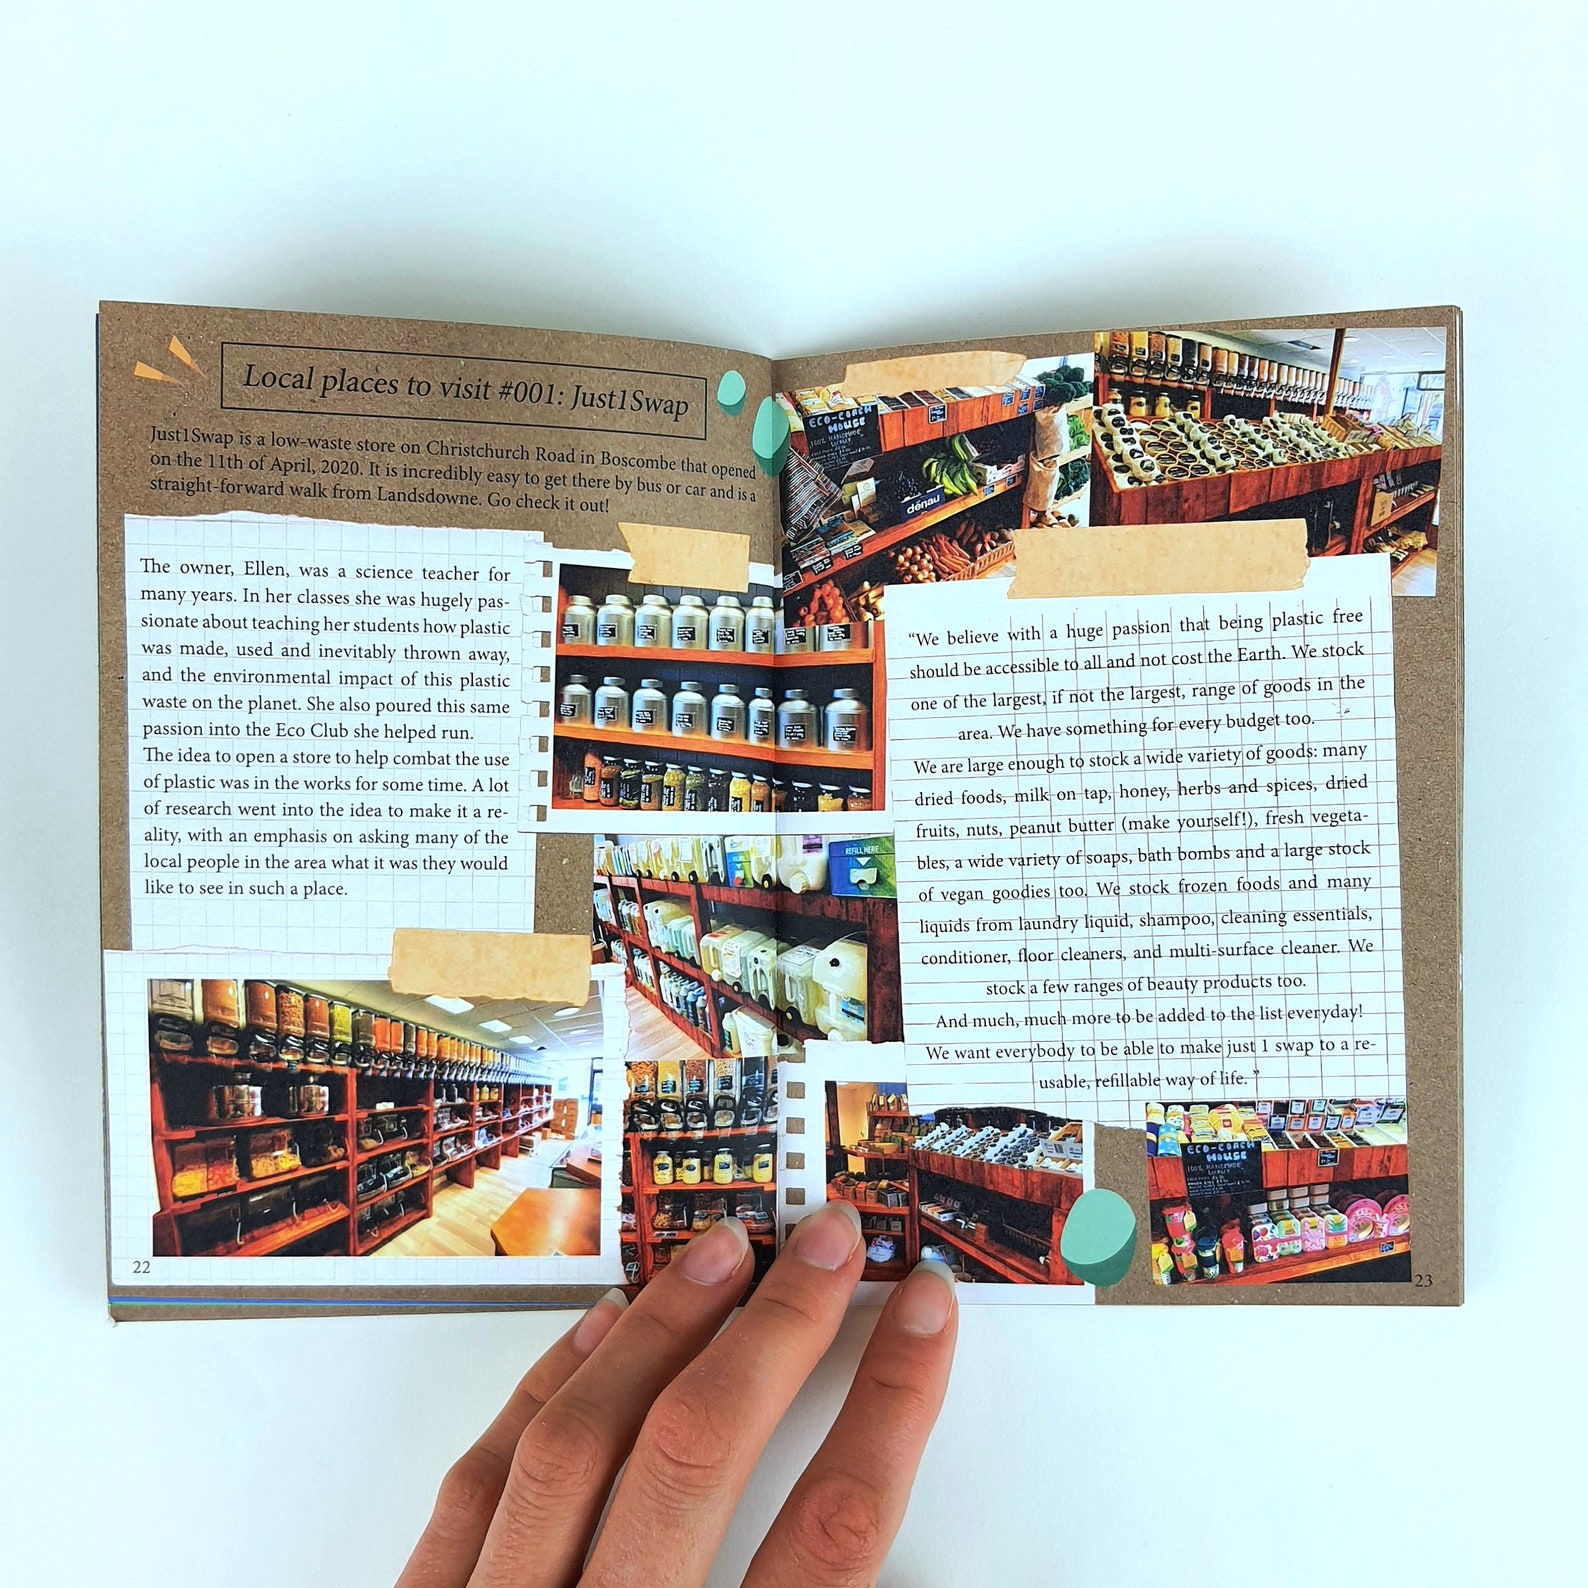 Local places to visit #001: Just1Swap
Just1Swap is a low-waste store on Christchurch Road in Boscombe that opened
on the 11th of April, 2020. It is incredibly easy to get there by bus or car and is a
straight-forward walk from Landsdowne. Go check it out!
The owner, Ellen, was a science teacher for
many years. In her classes she was hugely pas-
sionate about teaching her students how plastic
was made, used and inevitably thrown away,
and the environmental impact of this plastic
waste on the planet. She also poured this same
passion into the Eco Club she helped run.
The idea to open a store to help combat the use
of plastic was in the works for some time. A lot
of research went into the idea to make it a re-
ality, with an emphasis on asking many of the
local people in the area what it was they would
like to see in such a place.
22
ECO-COACH
HOUSE
100% HANDMADE
LOCALLY
dénau
REFILL HERE
“We believe with a huge passion that being plastic free
should be accessible to all and not cost the Earth. We stock
one of the largest, if not the largest, range of goods in the
area. We have something for every budget too.
We are large enough to stock a wide variety of goods: many
dried foods, milk on tap, honey, herbs and spices, dried
fruits, nuts, peanut butter (make yourself!), fresh vegeta-
bles, a wide variety of soaps, bath bombs and a large stock
of vegan goodies too. We stock frozen foods and many
liquids from laundry liquid, shampoo, cleaning essentials,
conditioner, floor cleaners, and multi-surface cleaner. We
stock a few ranges of beauty products too.
And much, much more to be added to the list everyday!
We want everybody to be able to make just 1 swap to a re-
usable, refillable way of life. ”
ECO-COACH
HOUSE
100% HANDMADE
LOCALLY
23